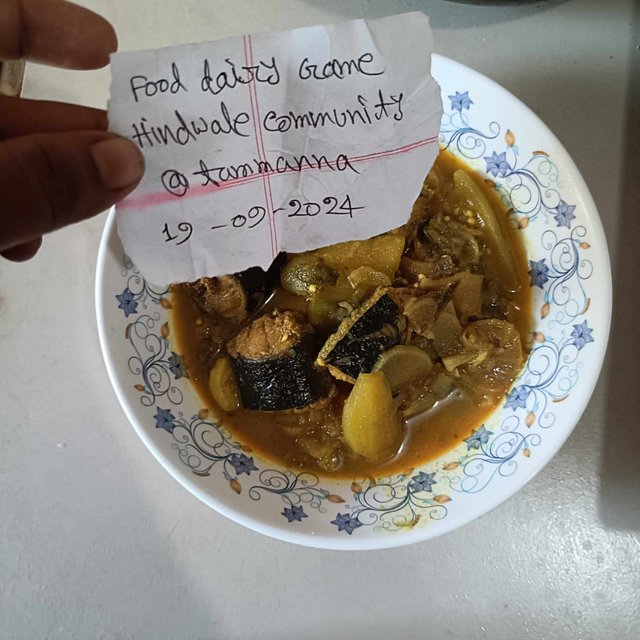 Food dairy Game
Hindwale community
@tammanna
19-09-2024